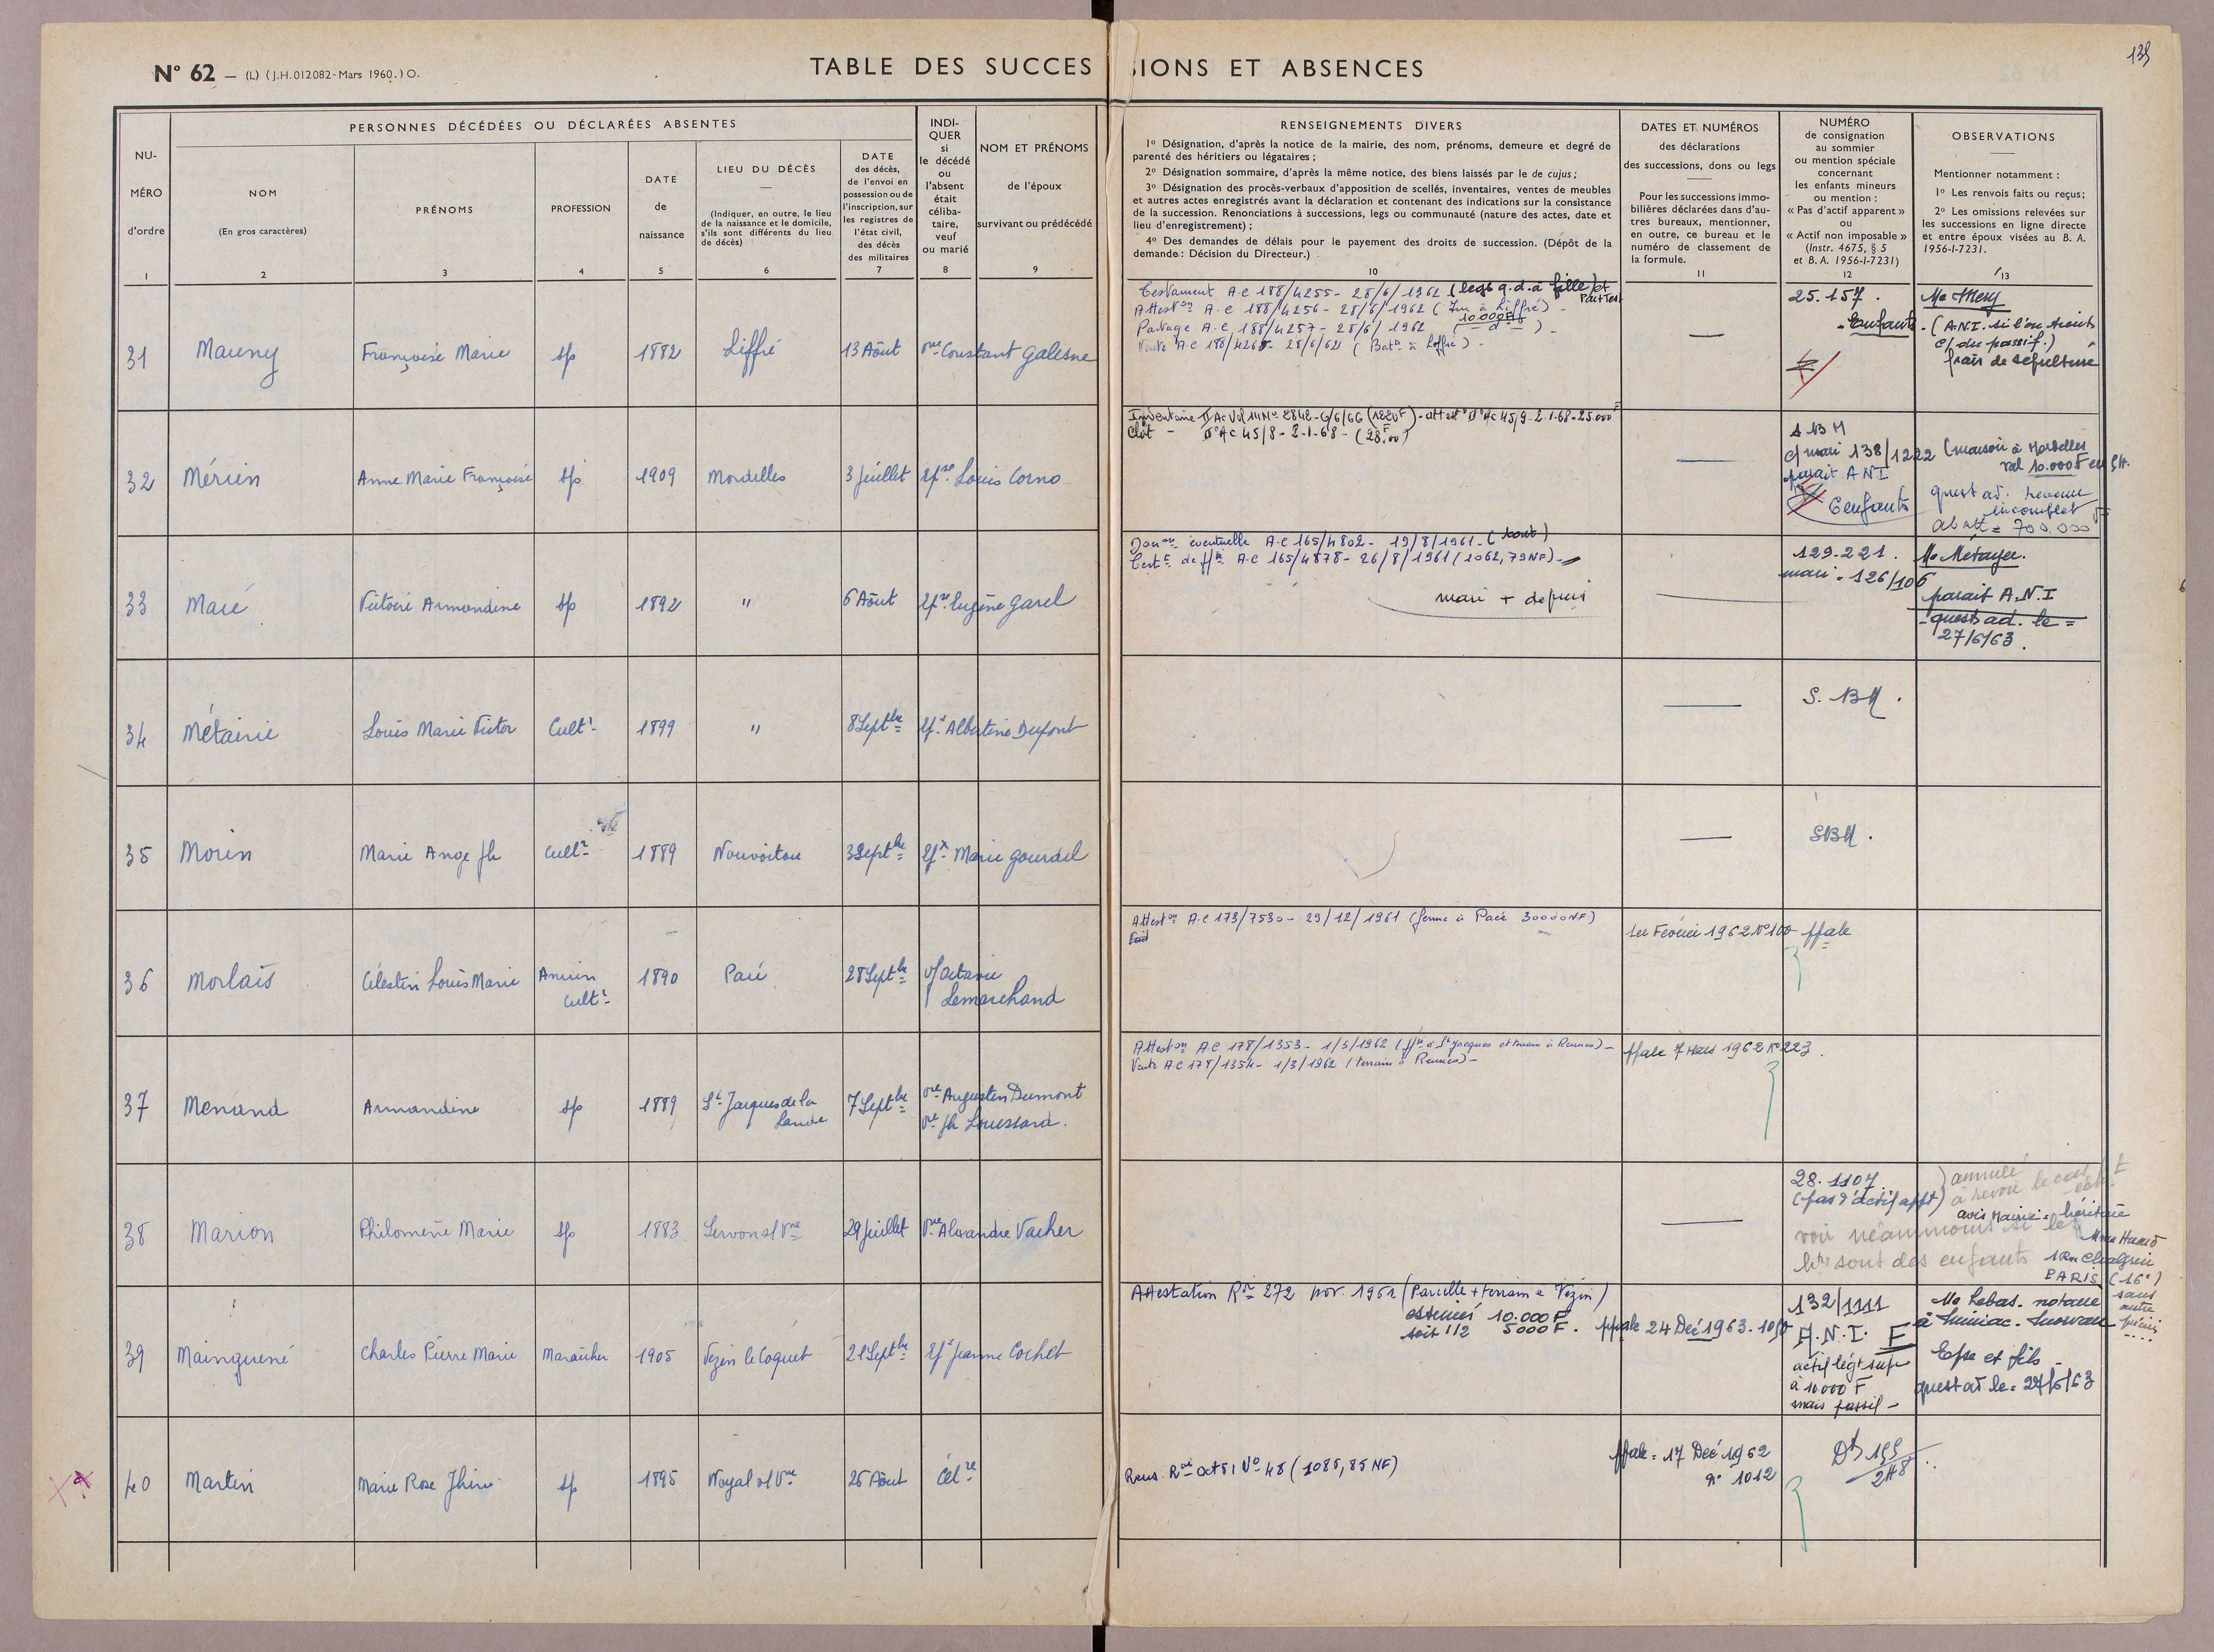 N° 62 — (L) (J.H. 012082 - Mars 1960.) O.
TABLE DES SUCCESSIONS ET ABSENCES
139
NU-
MÉRO
d'ordre
1
PERSONNES DÉCÉDÉES OU DÉCLARÉES ABSENTES
NOM
(En gros caractères)
2
PRÉNOMS
3
PROFESSION
4
DATE
de
naissance
5
LIEU DU DÉCÈS
(Indiquer, en outre, le lieu
de la naissance et le domicile,
s'ils sont différents du lieu
de décès)
6
DATE
des décès,
de l'envoi en
possession ou de
l'inscription, sur
les registres de
l'état civil,
des décès
des militaires
7
INDI-
QUER
si
le décédé
ou
l'absent
était
céliba-
taire,
veuf
ou marié
8
NOM ET PRÉNOMS
de l'époux
survivant ou prédécédé
9
RENSEIGNEMENTS DIVERS
1° Désignation, d'après la notice de la mairie, des nom, prénoms, demeure et degré de
parenté des héritiers ou légataires ;
2° Désignation sommaire, d'après la même notice, des biens laissés par le de cujus ;
3° Désignation des procès-verbaux d'apposition de scellés, inventaires, ventes de meubles
et autres actes enregistrés avant la déclaration et contenant des indications sur la consistance
de la succession. Renonciations à successions, legs ou communauté (nature des actes, date et
lieu d'enregistrement) ;
4° Des demandes de délais pour le payement des droits de succession. (Dépôt de la
demande : Décision du Directeur.)
10
DATES ET NUMÉROS
des déclarations
des successions, dons ou legs
Pour les successions immo-
bilières déclarées dans d'au-
tres bureaux, mentionner,
en outre, ce bureau et le
numéro de classement de
la formule.
11
NUMÉRO
de consignation
au sommier
ou mention spéciale
concernant
les enfants mineurs
ou mention :
« Pas d'actif apparent »
ou
« Actif non imposable »
(Instr. 4675, § 5
et B. A. 1956-I-7231)
12
OBSERVATIONS
Mentionner notamment :
1° Les renvois faits ou reçus ;
2° Les omissions relevées sur
les successions en ligne directe
et entre époux visées au B. A.
1956-I-7231.
13
31 Mauny Françoise Marie sp 1882 Liffré 13 Août Vve Constant Galesne
Testament A.C 188/4255 - 28/6/1962 (legs q.d. à fille) et
Atteston A.C 188/4256 - 28/6/1962 (Im à Liffré) -
10.000F
Partage A.C. 188/4257 - 28/6/1962
Vente A.C 188/426 - 28/6/62 (Batt à Liffré) -
—
25.157.
Enfants - (A.N.I. si l'on tient
c/ du passif.)
frais de sépulture
32 Mérien Anne Marie Françoise sp 1909 Mordelles 3 Juillet Ese Louis Corno
Inventaire II Ac Vol 14 N° 2842 - 6/6/66 (1220F) - attest° II° Ac 45/9 - 2-1-68 - 25.000F
Clôt - II° Ac 45/8 - 2-1-68 - (28,00)
—
S B M
c/ mari 138/1222 (maison à Mordelles
val 10.000F en
parait ANI
6 enfants
quest ad. revenue
incomplet
abatt = 700.000
33 Maré Victoire Armandine sp 1892 " 6 Août Ese Eugène Garel
Donon éventuelle A.C 165/4802 - 19/8/1961 - (tout)
Cert de ppté A.C 165/4878 - 26/8/1961 (1062,79 NF) -
mari + depuis
—
129-221. Me Métayer.
mari = 126/106
parait A.N.I
- quest ad. le =
27/6/63.
34 Métairie Louis Marie Victor Cultr 1899 " 8 Septbre Ex Albertine Dupont
—
S. BM.
35 Morin Marie Ange Jh Cultr 1889 Nouvoitou 3 Septbre Ex Marie Gourdel
—
SBM.
36 Morlais Célestin Louis Marie Ancien 1890 Pacé 28 Septbre Vf Octavie
Cultr Lemarchand
Attest on A.C 173/7530 - 29/12/1961 (ferme à Pacé 30000 NF)
1er Février 1962 N° 100 ppale
37 Menand Armandine sp 1889 St Jacques de la 7 Septbre Vve Augustin Dumont
Lande Vve Jh Loussard.
Attest on A.C 178/1353 - 1/3/1962 (ppté à St Jacques et terrain à Rennes) -
Vente A.C 178/1354 - 1/3/1962 (terrain à Rennes) -
ppale 7 Mars 1962 N° 223.
38 Marion Philomène Marie sp 1883 Servon s/ Vne 29 Juillet Vve Alexandre Vacher
—
28.1107 ) annulé
(pas d'actif appt) à revoir
avis Mairie : héritière
voir néanmoins si les
hers sont des enfants
1 Rue Chalgrin
PARIS (16°)
sans
autre
précis
39 Mainguené Charles Pierre Marie Maraîcher 1905 Vezin le Coquet 21 Septbre Ex Jeanne Cochet
Attestation Rne 272 nov. 1961 (Parcelle + terrain à Vezin)
estimés 10.000 F
soit 1/2 5000 F.
ppale 24 Déc 1963. 1050
132/1111
A.N.I. F
actif légt sup
à 10000 F
mais passif -
Me Lebas - notaire
à Miniac-Morvan
Epse et fils -
quest ad le = 27/6/63
40 Martin Marie Rose Jhine sp 1895 Noyal s/ Vne 26 Août Célre
Rens. Rne Oct 51 V° 48 (1085,85 NF)
ppale = 17 Déc 1962
n° 1012